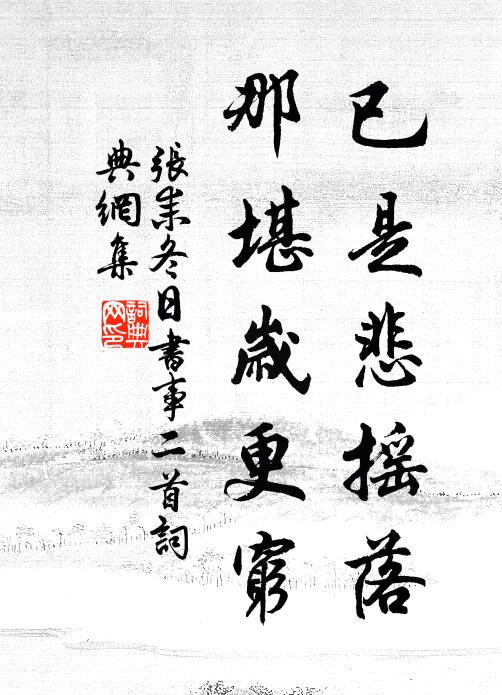 已是悲摇落
那堪歲更窮
張耒冬日書事二首詞
典網集
詞典
网印